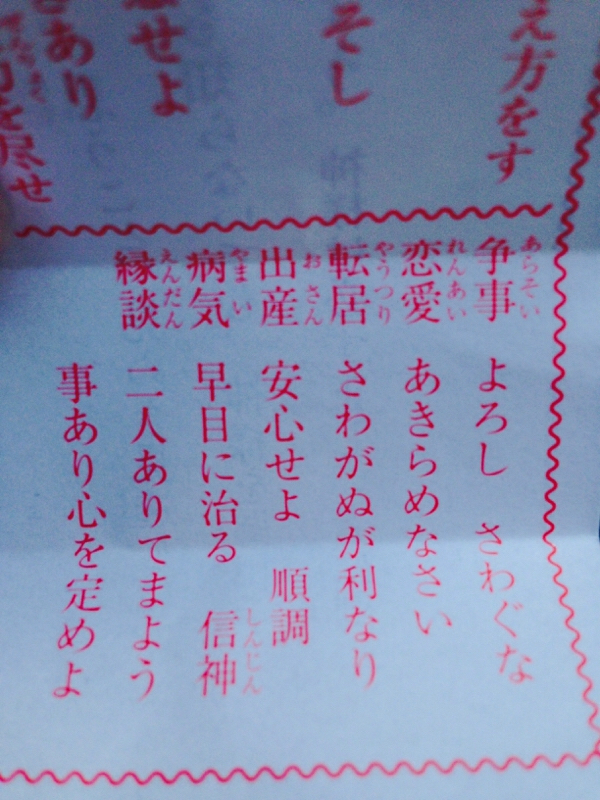 え方をす
そし
せよ
あり
を尽せ
争事 よろし さわぐな
あらそい
恋愛 あきらめなさい
れんあい
転居 さわがぬが利なり
やうつり
出産 安心せよ 順調
おさん
病気 早目に治る 信神
やまい
しんじん
縁談 二人ありてまよう
えんだん
事あり心を定めよ